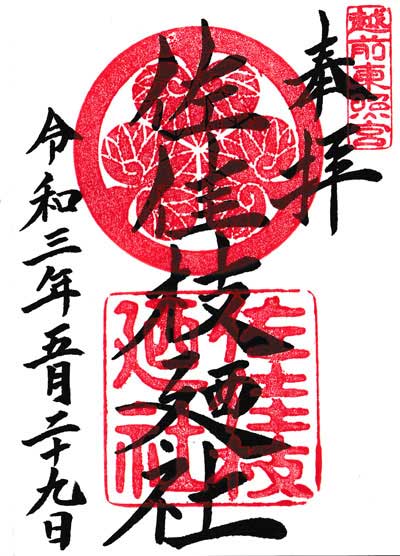 越前東照宮
奉拝
佐佳枝廼社
佐佳枝
廼社
令和三年五月二十九日